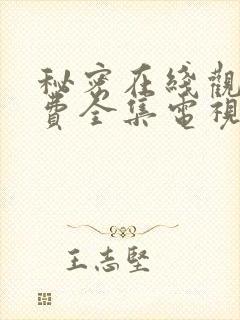 秘密在綫觀
費全集電視
王志堅